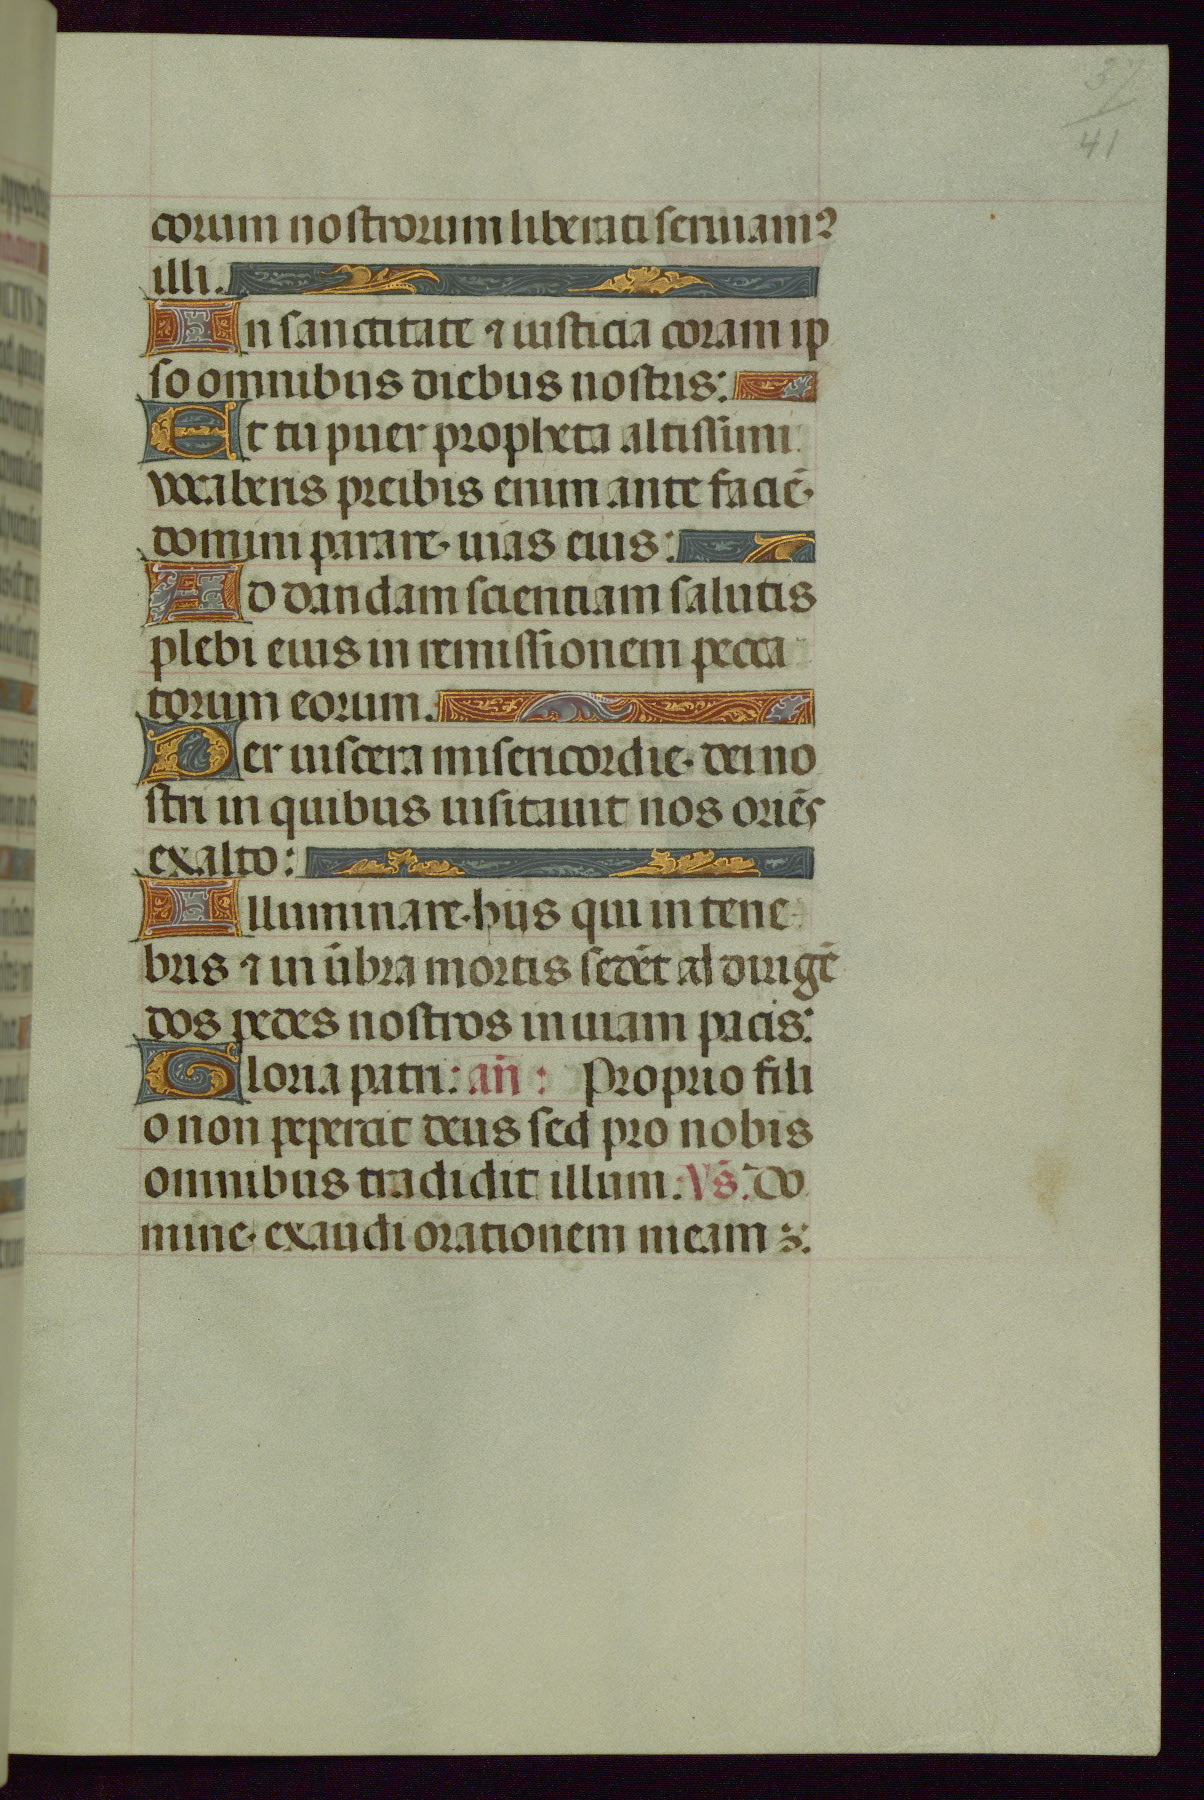 37
41
corum nostrorum liberati seruiam⁹
illi.
In sanctitate ⁊ iusticia coram ip
so omnibus diebus nostris:
Et tu puer propheta altissimi
vocaberis preibis enim ante facie᷑
domini parare uias eius:
Ad dandam scientiam salutis
plebi eius in remissionem pecca
torum eorum.
Per uiscera misericordie dei no
stri in quibus uisitauit nos oriēs
exalto:
Illuminare hiis qui in tene
bris ⁊ in ūbra mortis sedēt ad dirigē
dos pedes nostros in uiam pacis:
Gloria patri: añ: Proprio fili
o non pepercit deus sed pro nobis
omnibus tradidit illum. Vs̄. Do
mine exaudi orationem meam ⁊.